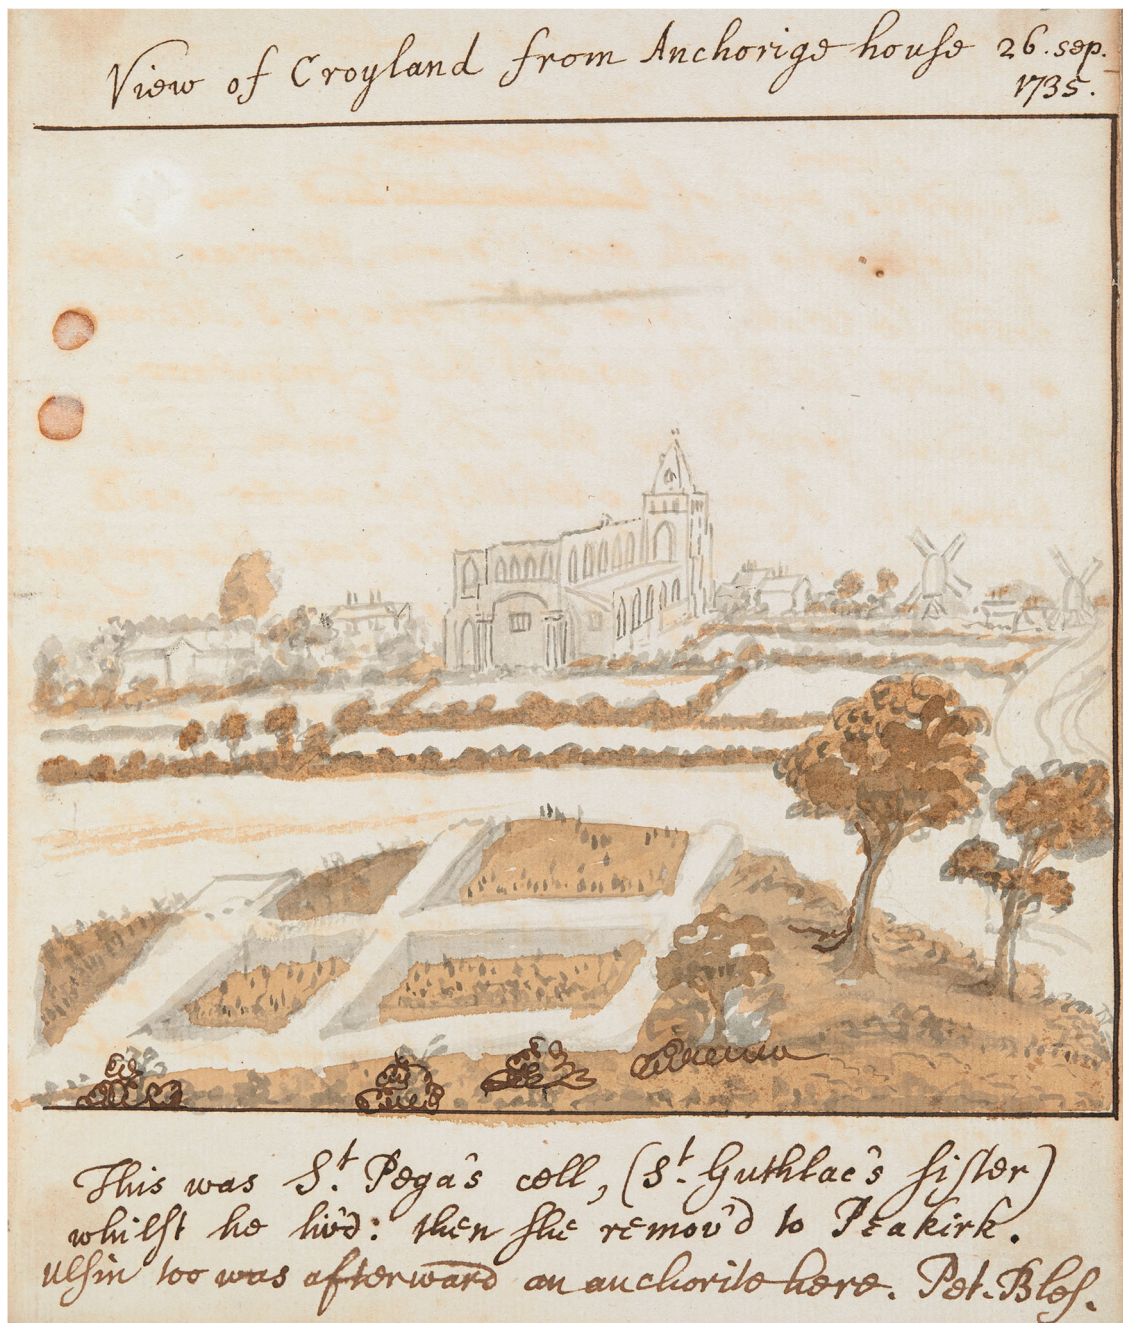 View of Croyland from Anchorige house 26. sep.
1735.
This was St. Pega's cell, (St. Guthlac's sister)
whilst he liv'd: then she remov'd to Peakirk.
Ulsin too was afterward an anchorite here. Pet. Bles.